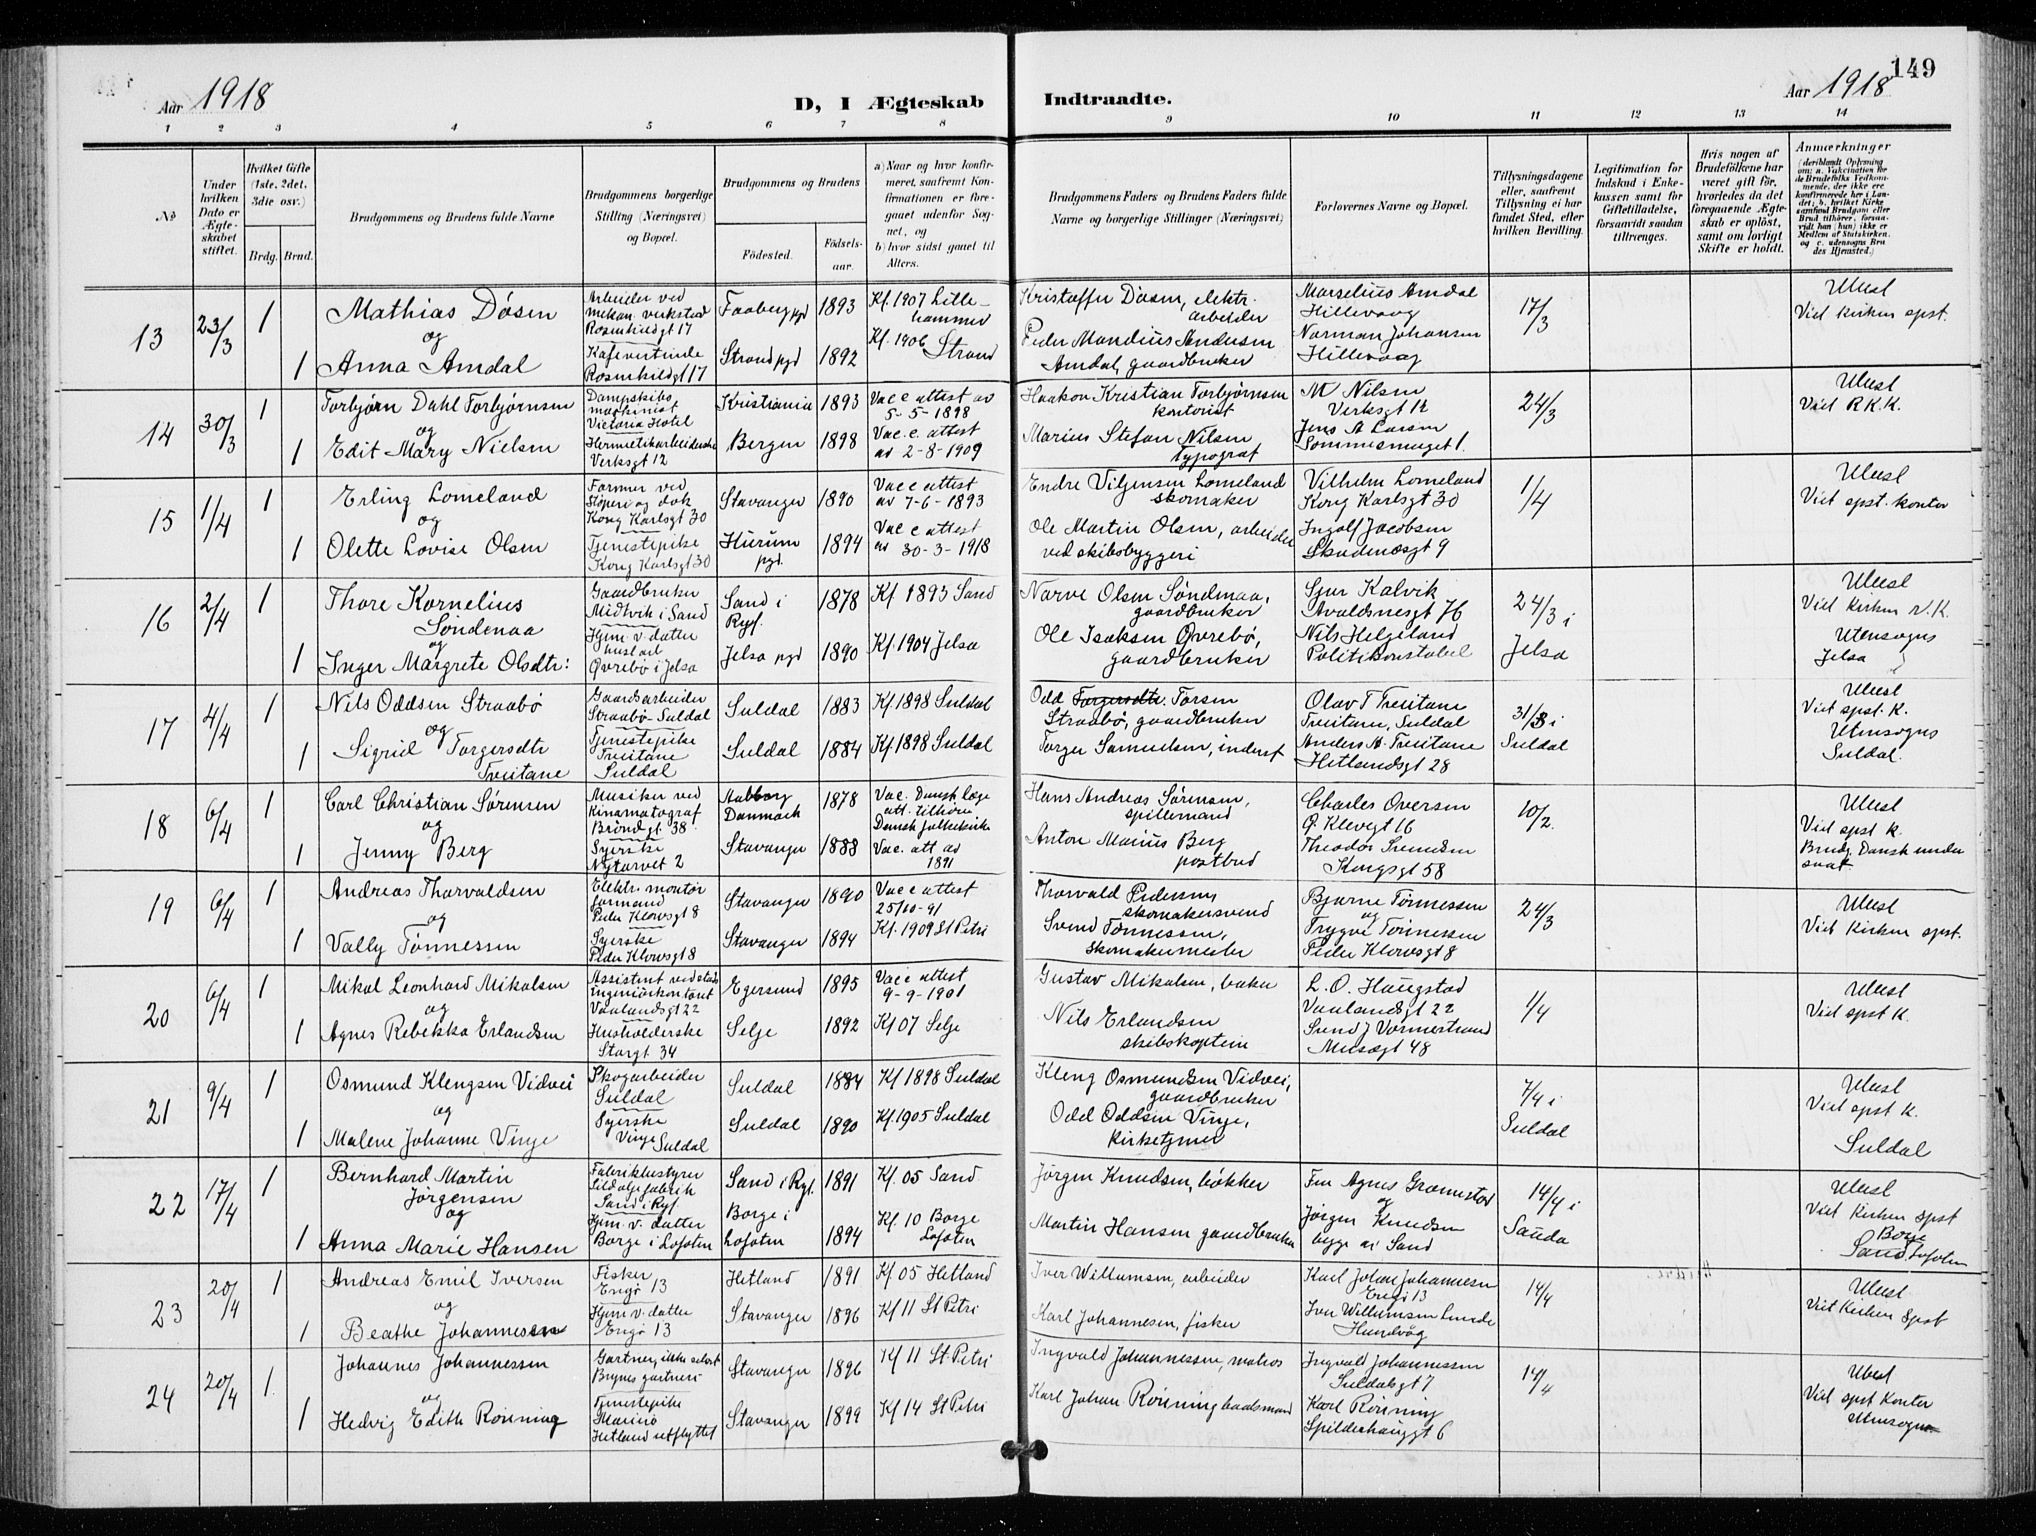 149
Aar 1918
D, I Ægteskab
Indtraadte.
Aar 1918
1 2 3 4 5 6 7 8 9 10 11 12 13 14
No
Under hvilken Dato er Ægteskabet stiftet.
Hvilket Gifte (1ste, 2det, 3die osv.)
Brdg. Brud.
Brudgommens og Brudens fulde Navne
Brudgommens borgerlige Stilling (Næringsvei) og Bopæl.
Brudgommens og Brudens
Fødested.
Fødselsaar.
a) Naar og hvor konfirmeret, saafremt Konfirmationen er foregaaet udenfor Sognet, og
b) hvor sidst gaaet til Alters.
Brudgommens Faders og Brudens Faders fulde Navne og borgerlige Stillinger (Næringsvei)
Forlovernes Navne og Bopæl.
Tillysningsdagene eller, saafremt Tillysning ei har fundet Sted, efter hvilken Bevilling.
Legitimation for Indskud i Enkekassen samt for Giftetilladelse, forsaavidt saadan tiltrænges.
Hvis nogen af Brudefolkene har været gift før, hvorledes da det foregaaende Ægteskab er opløst, samt om lovligt Skifte er holdt.
Anmærkninger
(deriblandt Oplysning om: a. Vaccination for de Brudefolks Vedkommende, der ikke ere konfirmerede her i Landet; b. hvilket Kirkesamfund Brudgom eller Brud tilhører, forsaavidt han (hun) ikke er Medlem af Statskirken, og c. udensogns Brudes Hjemsted.)
13 23/3 1 Mathias Døsen
og
1 Anna Amdal
Arbeider ved
mekan. verksted
Rosenkildgt 17
Kafevertinde
Rosenkildgt 17
Faaberg pgd 1893
Strand pgd 1892
Kf. 1907 Lille-
hammer
Kf. 1906 Strand
Kristoffer Døsen, elektr.
arbeider
Peder Mandius Andersen
Amdal, gaardbruker
Marselius Amdal
Hillevaag
Norman Johansen
Hillevaag
17/3
Ulæst
Viet kirken spst.
14 30/3 1 Torbjørn Dahl Torbjørnsen
og
1 Edit Mary Nielsen
Dampskibs
maskinist
Victoria Hotel
Hermetikarbeiderske
Verksgt 12
Kristiania 1893
Bergen 1898
Vacc attest av
5-5-1898
Vac. c. attest
av 2-8-1909
Haakon Kristian Torbjørnsen
kontorist
Marius Stefan Nilsen
typograf
M Nilsen
Verksgt 12
Jens A Larsen
24/3
Ulæst
Viet R.K.K.
15 1/4 1 Erling Lomeland
og
1 Olette Lovise Olsen
Former ved
Støperi og dok
Kong Karlsgt 30
Tjenestepike
Kong Karlsgt 30
Stavanger 1890
Hurum
pgd. 1894
Vacc attest
av 7-6-1893
Vac c attest
av 30-3-1918
Endre Vilhmsen Lomeland
skomaker
Ole Martin Olsen, arbeider
ved skibsbyggeri
Vilhelm Lomeland
Kong Karlsgt 30
Ingolf Jacobsen
Skudenesgt 9
1/4
Ulæst
Viet spst. kontor
16 2/4 1 Thore Kornelius
Søndenaa
og
1 Inger Margrete Olsdtr:
Gaardbruker
Midtvik i Sand
Hjem. v. datter
Øvrebø i Jelsa
Sand i
Ryf. 1878
Jelsa pgd 1890
Kf 1893 Sand
Kf. 1904 Jelsa
Narve Olsen Søndenaa,
gaardbruker
Ole Isaksen Øvrebø,
gaardbruker
Sjur Kalvik
Avaldsnesgt 76
Nils Helgeland
Politikonstabel
24/3 i
Jelsa
Ulæst
Viet Kirken V.K.
Utensogns
Jelsa
17 4/4 1 Nils Oddsen Straabø
og
1 Sigrid Torgersdtr
Treitane
Gaardsarbeider
Straabø-Suldal
Tjenestepike
Treitane
Suldal
Suldal 1883
Suldal 1884
Kf. 1898 Suldal
Kf. 1898 Suldal
Odd Torgersdtr. Torsen
Straabø, gaardbruker
Torger Samuelsen, inderst
Olav T Treitane
Treitane, Suldal
Anders A. Treitane
Hetlandsgt 28
31/3 i
Suldal
Ulæst
Viet spst. K.
Utensogns
Suldal.
18 6/4 1 Carl Christian Sørensen
og
1 Jenny Berg
Musiker ved
Kinamatograf
Brøndgt 38
Syerske
Nytorvet 2
Aalborg
Danmark 1878
Stavanger 1888
Vac. Dansk læge
att. tilhører
Dansk folkekirke
Vac. att av
1891
Hans Andreas Sørensen,
spillemand
Anton Marius Berg
postbud
Charles Oversen
P. Klowsgt 16
Theodor Svendsen
Kongsgt 58
10/2
Ulæst
Viet spst k.
Brudg. Dansk under
saat
19 6/4 1 Andreas Thorvaldsen
og
1 Vally Tønnessen
Elektr. montør
formand
Peder Klowsgt 8
Syerske
Peder Klowsgt 8
Stavanger 1890
Stavanger 1894
Vacc attest
25/10-91
Kf. 1909 St Petri
Thorvald Pedersen,
skomakersvend
Svend Tønnessen,
skomakermester
Bjarne Tønnessen
og
Trygve Tønnessen
Peder Klowsgt 8
24/3
Ulæst
Viet Kirken spst.
20 6/4 1 Mikal Leonhard Mikalsen
og
1 Agnes Rebekka Erlandsen
Assistent ved stads
ingeniørkontoret
Vaalandsgt 22
Husholderske
Storgt 34
Egersund 1895
Selje 1892
Vacc attest
9-9-1901
Kf 07 Selje
Gustav Mikalsen, baker
Nils Erlandsen
skibskaptein
L. O. Haugstad
Vaalandsgt 22
Svend J Vormestrand
Musægt 48
1/4
Ulæst
Viet spst K.
21 9/4 1 Osmund Klengsen Vidvei
og
1 Malene Johanne Vinje
Skogarbeider
Suldal
Syerske
Vinje Suldal
Suldal 1884
Suldal 1890
Kf 1898 Suldal
Kf. 1905 Suldal
Kleng Osmundsen Vidvei,
gaardbruker
Odd Oddsen Vinje,
kirketjener
7/4 i
Suldal
Ulæst
Viet spst K.
Suldal
22 17/4 1 Bernhard Martin
Jørgensen
og
1 Anna Marie Hansen
Fabrikbestyrer
Sildoljefabrik
Sand i Ryf.
Hjem. v. datter
Borge i Lofoten
Sand i Ryf. 1891
Borge i
Lofoten 1894
Kf. 05 Sand
Kf. 10 Borge
Lofoten
Jørgen Knudsen, bøkker
Martin Hansen gaardbruker
Fru Agnes Gramstad
og
Jørgen Knudsen
begge av Sand
14/4 i
Sauda
Ulæst
Viet Kirken spst
Borge
Sand. Lofoten
23 20/4 1 Andreas Emil Iversen
og
1 Beathe Johannesen
Fisker
Engø 13
Hjem. v. datter
Engø 13
Hetland 1891
Stavanger 1896
Kf. 05 Hetland
Kf 11 St Petri
Iver Willumsen, arbeider
Karl Johannesen, fisker
Karl Johan Johannesen
Engø 13
Iver Willumsen Lunde
Hundvåg
14/4
Ulæst
Viet Kirken Spst
24 20/4 1 Johannes Johannessen
og
1 Hedvig Edith Rønning
Gartner, ikke selvst
Brynes gartneri
Tjenestepike
Marierø
Hetland utflyttet
Stavanger 1896
Stavanger 1899
Kf 11 St. Petri
Kf 14 St Petri
Ingvald Johannessen, matros
Karl Johan Rønning baadsmand
Ingvald Johannessen
Suldalsgt 7
Karl Rønning
Spilderhauggt 6
14/4
Ulæst
Viet spst Kontor
utensogns